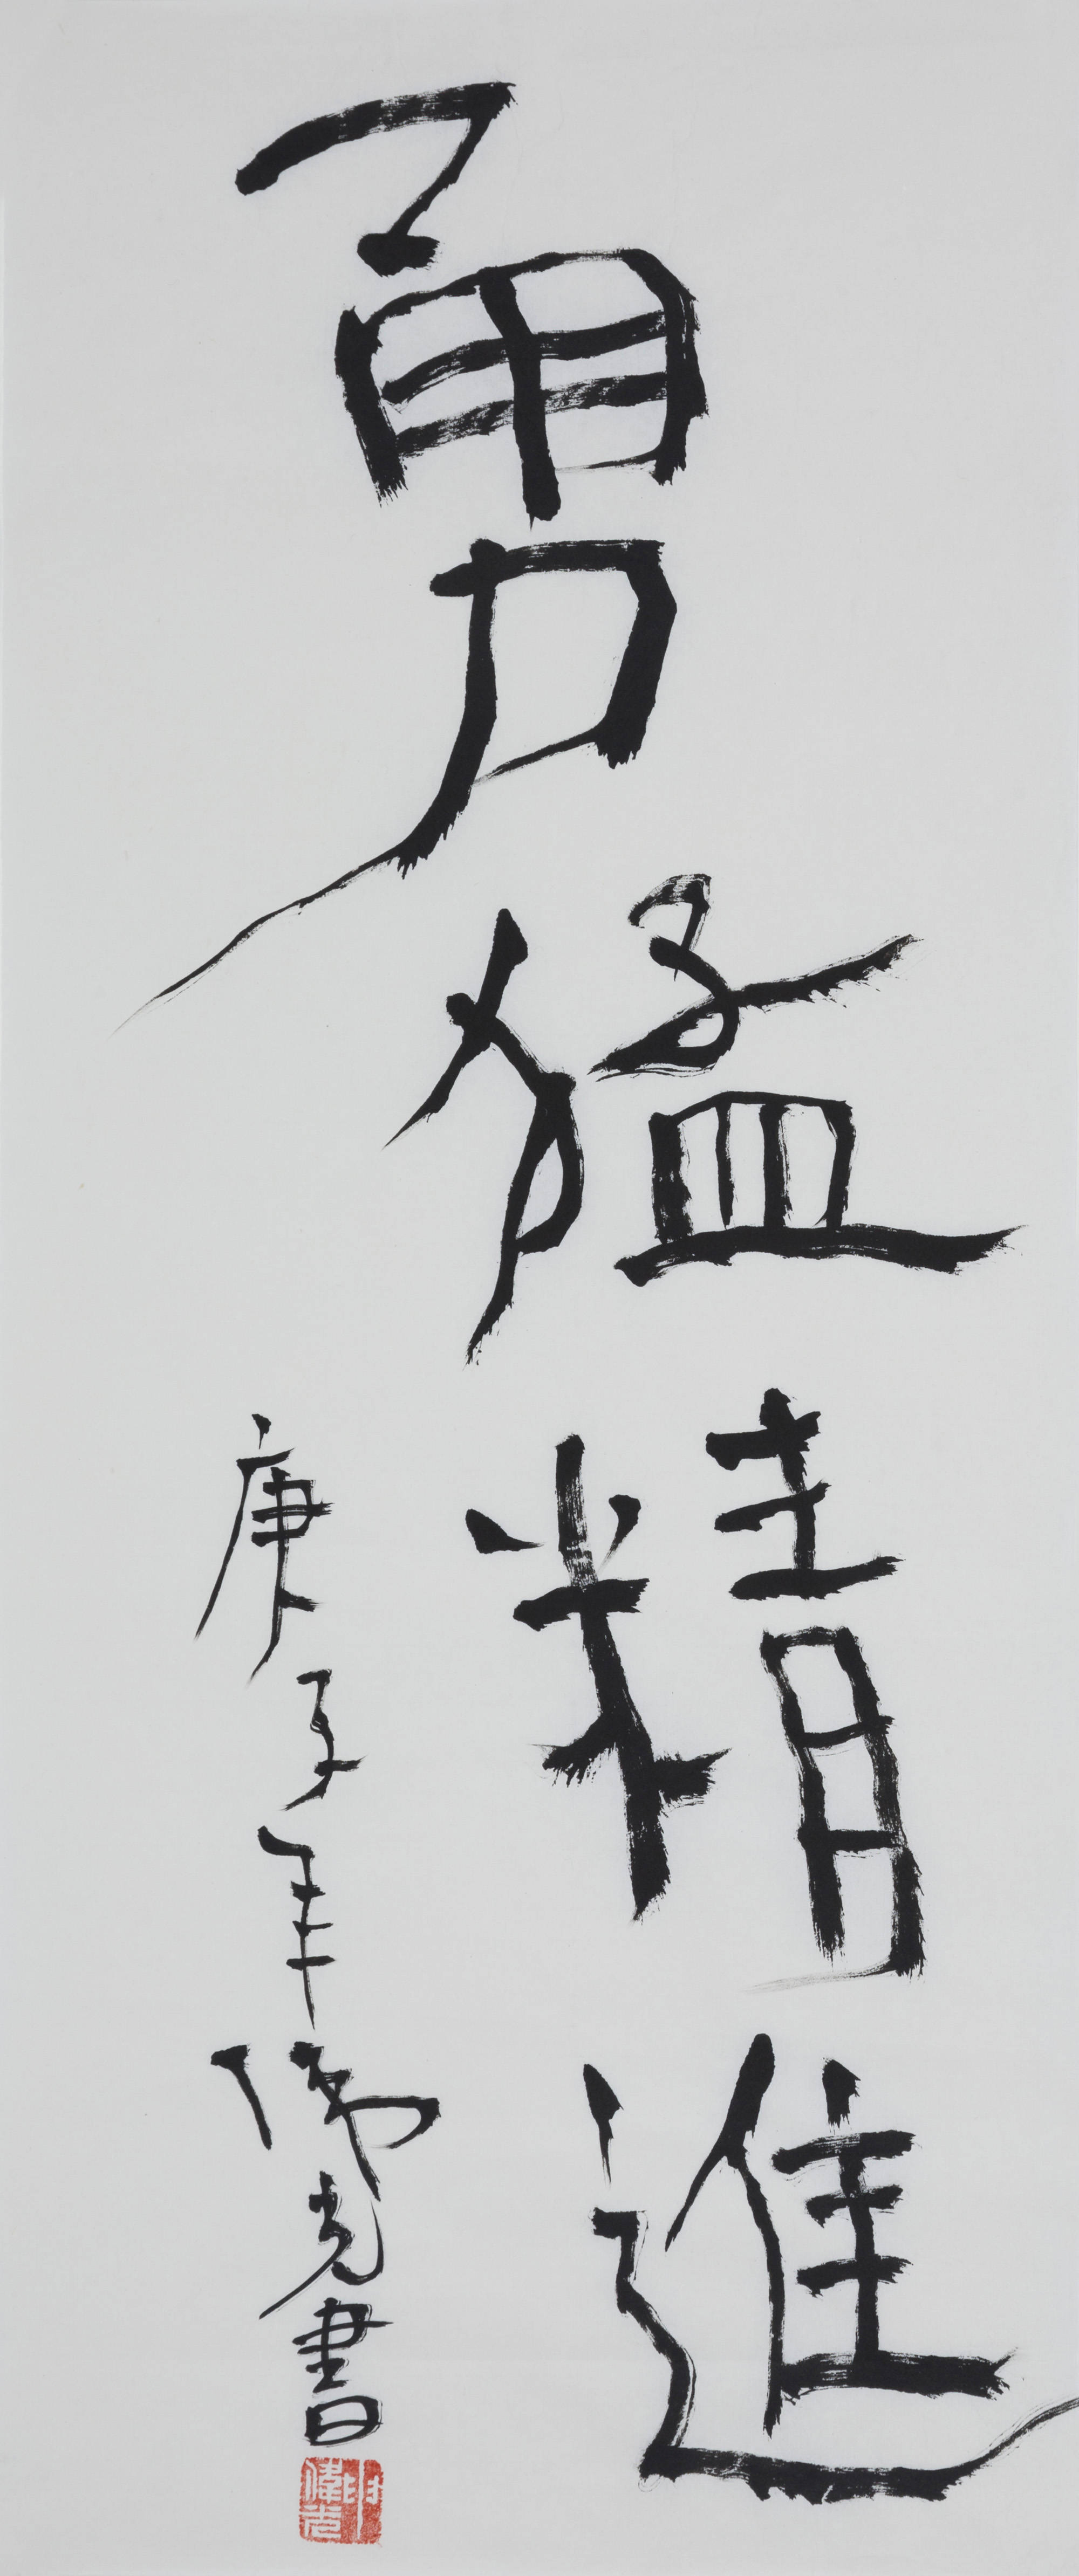 勇猛精進
庚子年偉光書